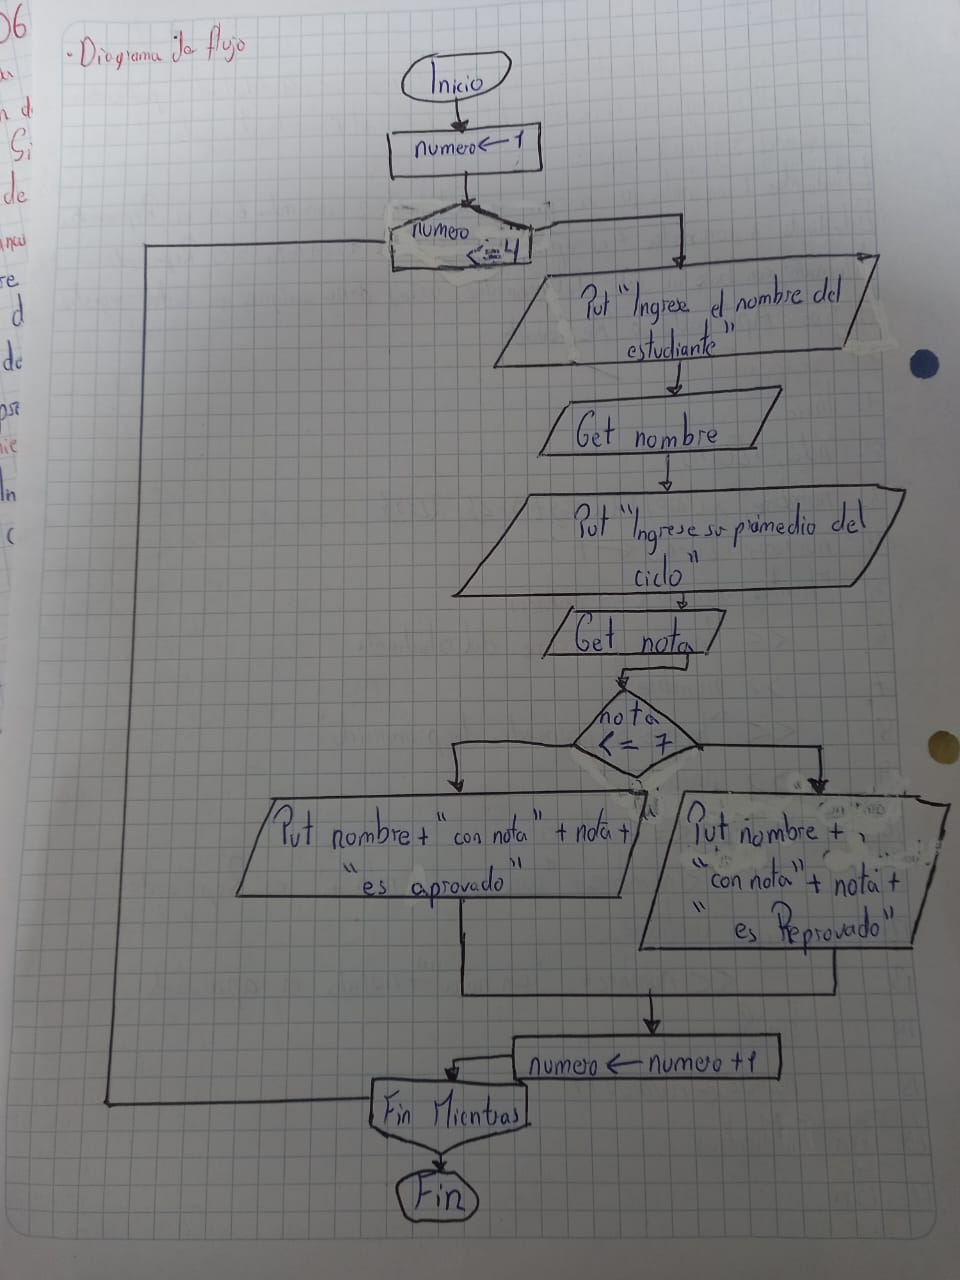 06
- Diagrama de flujo
n d
Si
de
d
de
In
c
Inicio
numero ← 1
numero
<= 4
Put "Ingrese el nombre del
estudiante"
Get nombre
Put "Ingrese su promedio del
ciclo"
Get nota
nota
<= 7
Put nombre + "con nota" + nota +
"es aprovado"
Put nombre +
"con nota" + nota +
" es Reprovado"
numero ← numero + 1
Fin Mientras
Fin